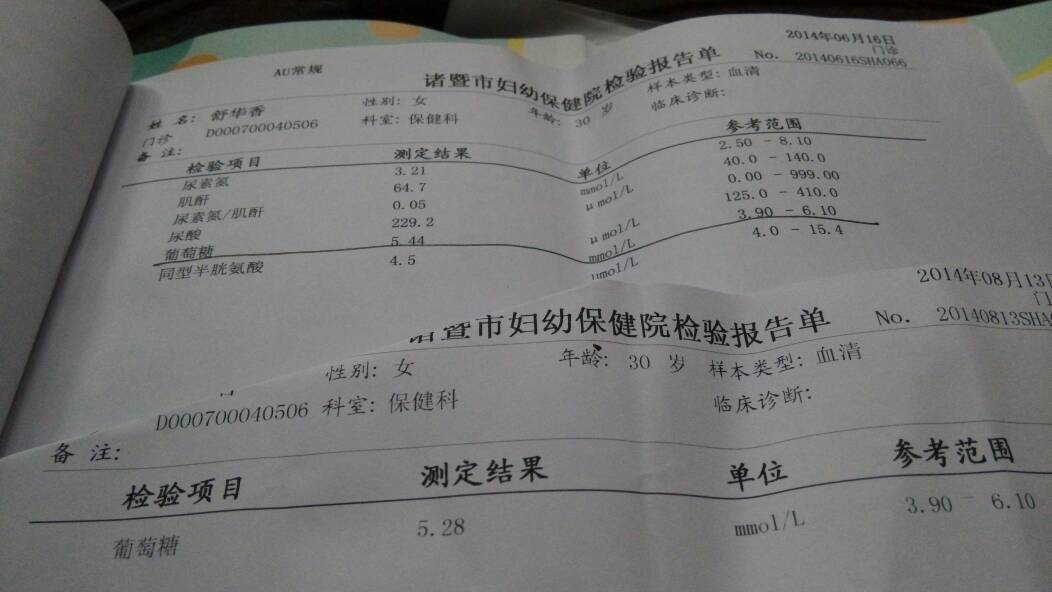 2014年06月16日
AU常规
诸暨市妇幼保健院检验报告单
门诊
No. 20140616SHA066
姓 名: 舒华香 性别: 女 年龄: 30 岁 样本类型: 血清
门诊 D000700040506 科室: 保健科 临床诊断:
备 注:
检验项目 测定结果 单位 参考范围
尿素氮 3.21 mmol/L 2.50 - 8.10
肌酐 64.7 μmol/L 40.0 - 140.0
尿素氮/肌酐 0.05 0.00 - 999.00
尿酸 229.2 μmol/L 125.0 - 410.0
葡萄糖 5.44 mmol/L 3.90 - 6.10
同型半胱氨酸 4.5 μmol/L 4.0 - 15.4
2014年08月13日
诸暨市妇幼保健院检验报告单
No. 20140813SHA
性别: 女 年龄: 30 岁 样本类型: 血清
D000700040506 科室: 保健科 临床诊断:
备 注:
检验项目 测定结果 单位 参考范围
葡萄糖 5.28 mmol/L 3.90 - 6.10